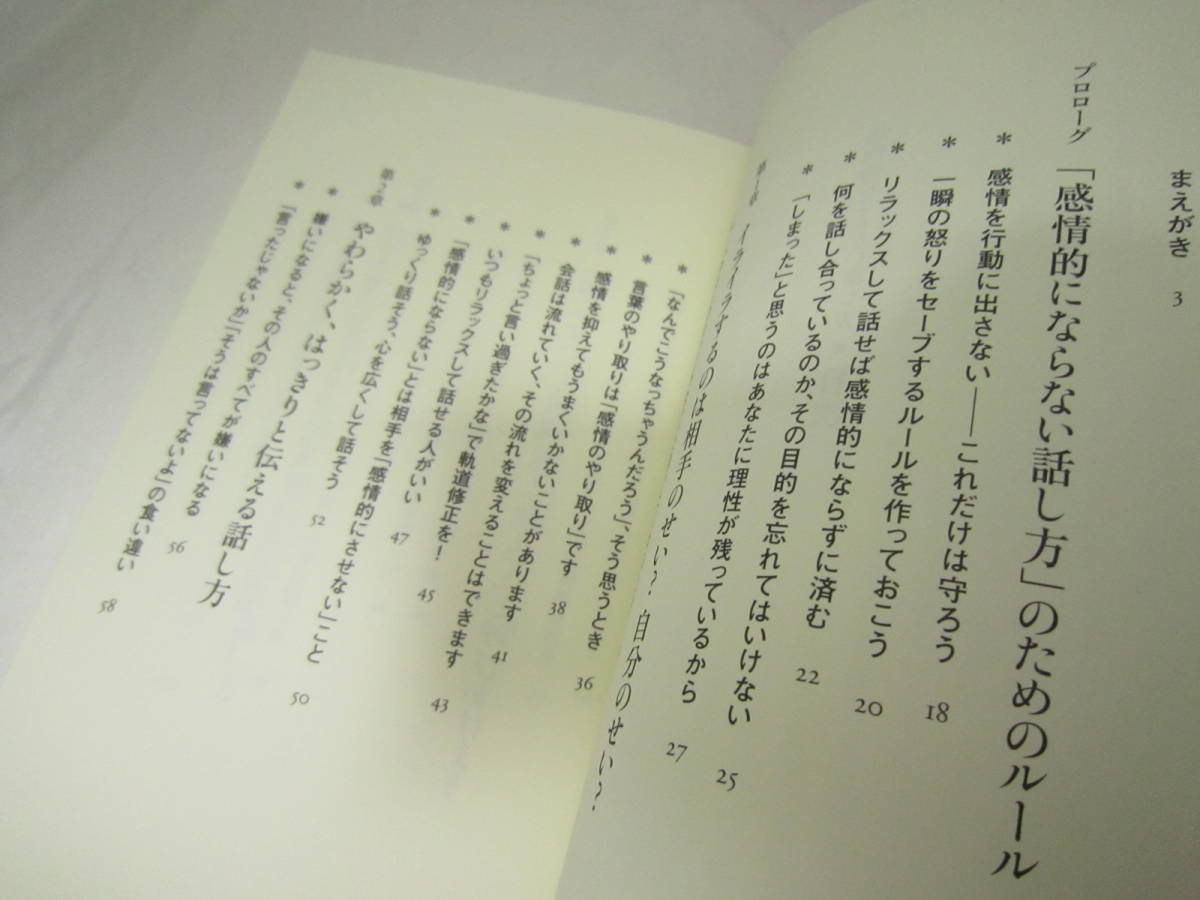 まえがき 3
プロローグ 「感情的にならない話し方」のためのルール
* 感情を行動に出さない――これだけは守ろう 18
* 一瞬の怒りをセーブするルールを作っておこう 20
* リラックスして話せば感情的にならずに済む 22
* 何を話し合っているのか、その目的を忘れてはいけない 25
* 「しまった」と思うのはあなたに理性が残っているから 27
第1章 イライラするのは相手のせい? 自分のせい?
* 「なんでこうなっちゃうんだろう」、そう思うとき 36
* 言葉のやり取りは「感情のやり取り」です 38
* 感情を抑えてもうまくいかないことがあります 41
* 会話は流れていく、その流れを変えることはできます 43
* 「ちょっと言い過ぎたかな」で軌道修正を! 45
* いつもリラックスして話せる人がいい 47
* 「感情的にならない」とは相手を「感情的にさせない」こと 50
* ゆっくり話そう、心を広くして話そう 52
第2章 やわらかく、はっきりと伝える話し方
* 嫌いになると、その人のすべてが嫌いになる 56
* 「言ったじゃないか」「そうは言ってないよ」の食い違い 58